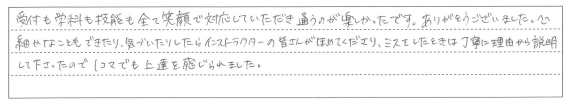 受付も学科も技能も全て笑顔で対応していただき通うのが楽しかったです。ありがとうございました。
細かなこともできたり、気づいたりしたらインストラクターの皆さんがほめてくださり、ミスをしたときは丁寧に理由から説明
して下さったので1コマでも上達を感じられました。